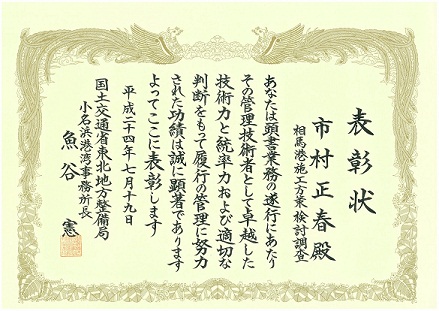 表彰状
相馬港施工方策検討調査
市村正春殿
あなたは頭書業務の遂行にあたり
その管理技術者として卓越した
技術力と統率力および適切な
判断をもって履行の管理に努力
された功績は誠に顕著であります
よってここに表彰します
平成二十四年七月十九日
国土交通省東北地方整備局
小名浜港湾事務所長
魚谷憲